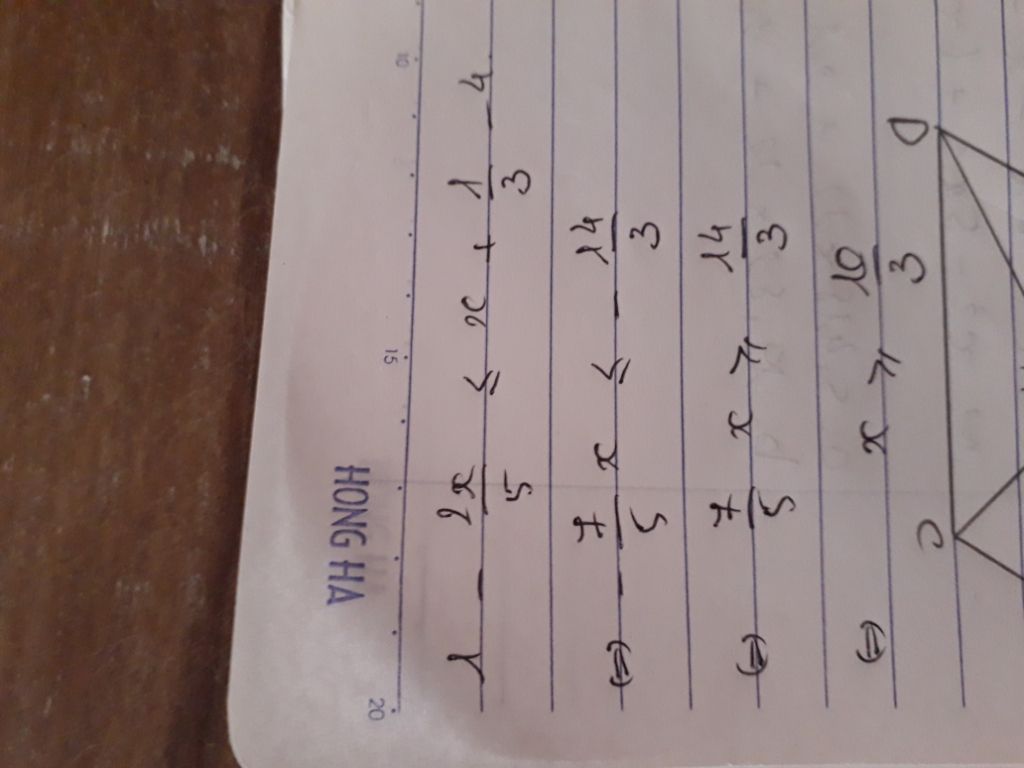 HONG HA
10
15
20
1 - 2x/5 ≤ x + 1/3 - 4
(=) - 7/5 x ≤ - 14/3
(=) 7/5 x ≥ 14/3
(=) x ≥ 10/3